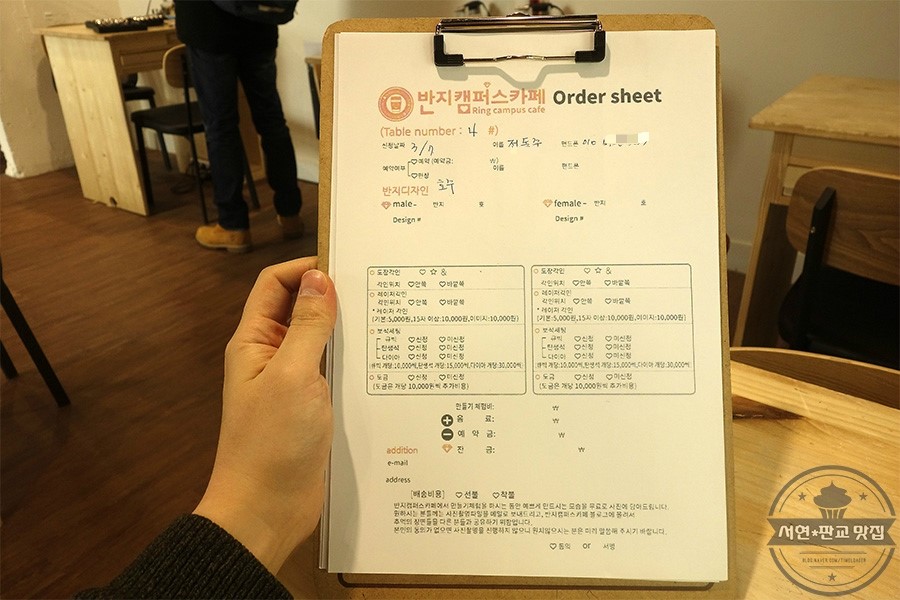 반지캠퍼스카페 Order sheet
Ring campus cafe
(Table number : 4 #)
신청날짜 3/7 이름 핸드폰 010
예약여부 ♡예약 (예약금: ₩) 이름 핸드폰
♡현장
반지디자인 호주
male- 반지 호 female- 반지 호
Design # Design #
○ 도장각인 ♡ ☆ & ○ 도장각인 ♡ ☆ &
각인위치 ♡안쪽 ♡바깥쪽 각인위치 ♡안쪽 ♡바깥쪽
○ 레이저각인 ○ 레이저각인
각인위치 ♡안쪽 ♡바깥쪽 각인위치 ♡안쪽 ♡바깥쪽
* 레이저 각인 * 레이저 각인
(기본:5,000원,15자 이상:10,000원,이미지:10,000원) (기본:5,000원,15자 이상:10,000원,이미지:10,000원)
○ 보석세팅 ○ 보석세팅
큐빅 ♡신청 ♡미신청 큐빅 ♡신청 ♡미신청
탄생석 ♡신청 ♡미신청 탄생석 ♡신청 ♡미신청
다이아 ♡신청 ♡미신청 다이아 ♡신청 ♡미신청
(큐빅 개당:10,000씩,탄생석 개당:15,000씩,다이아 개당:30,000씩) (큐빅 개당:10,000씩,탄생석 개당:15,000씩,다이아 개당:30,000씩)
○ 도금 ♡신청 ♡미신청 ○ 도금 ♡신청 ♡미신청
(도금은 개당 10,000원씩 추가비용) (도금은 개당 10,000원씩 추가비용)
만들기 체험비: ₩
+ 음 료: ₩
- 예 약 금: ₩
addition 잔 금: ₩
e-mail
address
[배송비용] ♡선불 ♡착불
반지캠퍼스카페에서 만들기체험을 하시는 동안 예쁘게 만드시는 모습을 무료로 사진에 담아드립니다.
원하시는 분들께는 사진촬영파일을 메일로 보내드리고, 반지캠퍼스카페 블로그에 올려서
추억의 장면들을 다른 분들과 공유하기 위함입니다.
본인의 동의가 없으면 사진촬영을 진행하지 않으니 원치않으시는 분은 미리 말씀해 주시기 바랍니다.
♡동의 or 서명
서연★판교 맛집